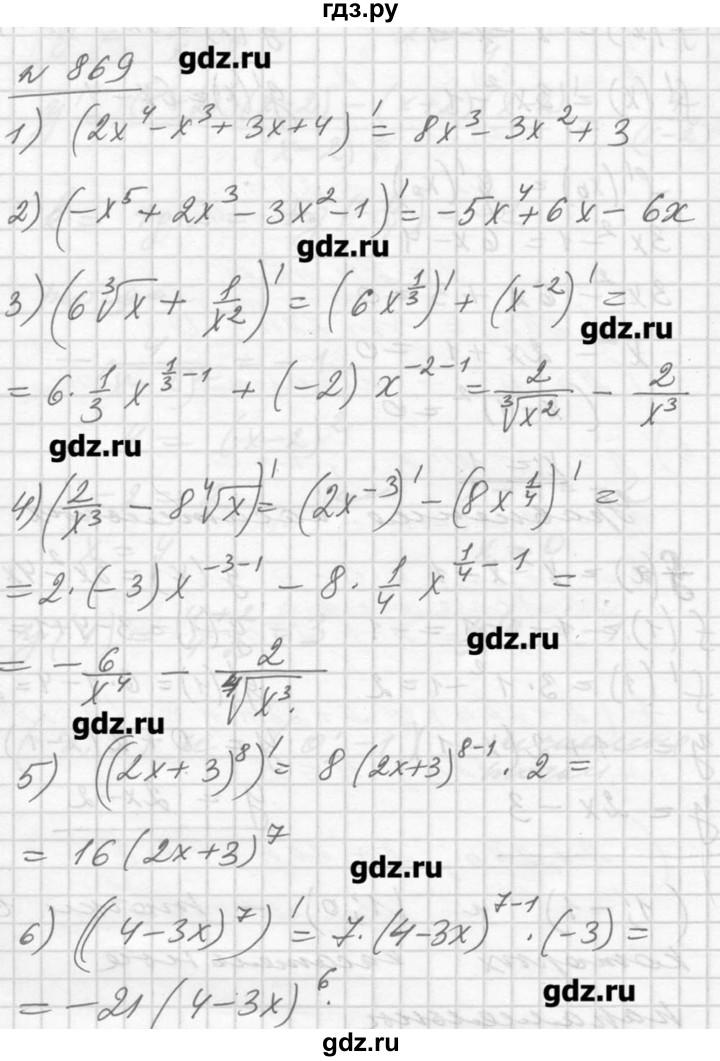 гдз.ру
gdz.ru
№ 869
1) (2x⁴ - x³ + 3x + 4)' = 8x³ - 3x² + 3
2) (-x⁵ + 2x³ - 3x² - 1)' = -5x⁴ + 6x - 6x
gdz.ru
3) (6∛x + 1/x²)' = (6x^(1/3))' + (x^(-2))' =
gdz.ru
= 6 · 1/3 x^(1/3 - 1) + (-2) x^(-2-1) = 2/∛x² - 2/x³
gdz.ru
4) (2/x³ - 8∜x)' = (2x^(-3))' - (8x^(1/4))' =
= 2 · (-3) x^(-3-1) - 8 · 1/4 x^(1/4 - 1) =
gdz.ru
= - 6/x⁴ - 2/∜x³.
gdz.ru
5) ((2x + 3)⁸)' = 8 (2x+3)^(8-1) · 2 =
= 16 (2x+3)⁷
gdz.ru
6) ((4-3x)⁷)' = 7 · (4-3x)^(7-1) · (-3) =
= -21 (4-3x)⁶.
gdz.ru
гдз.ру